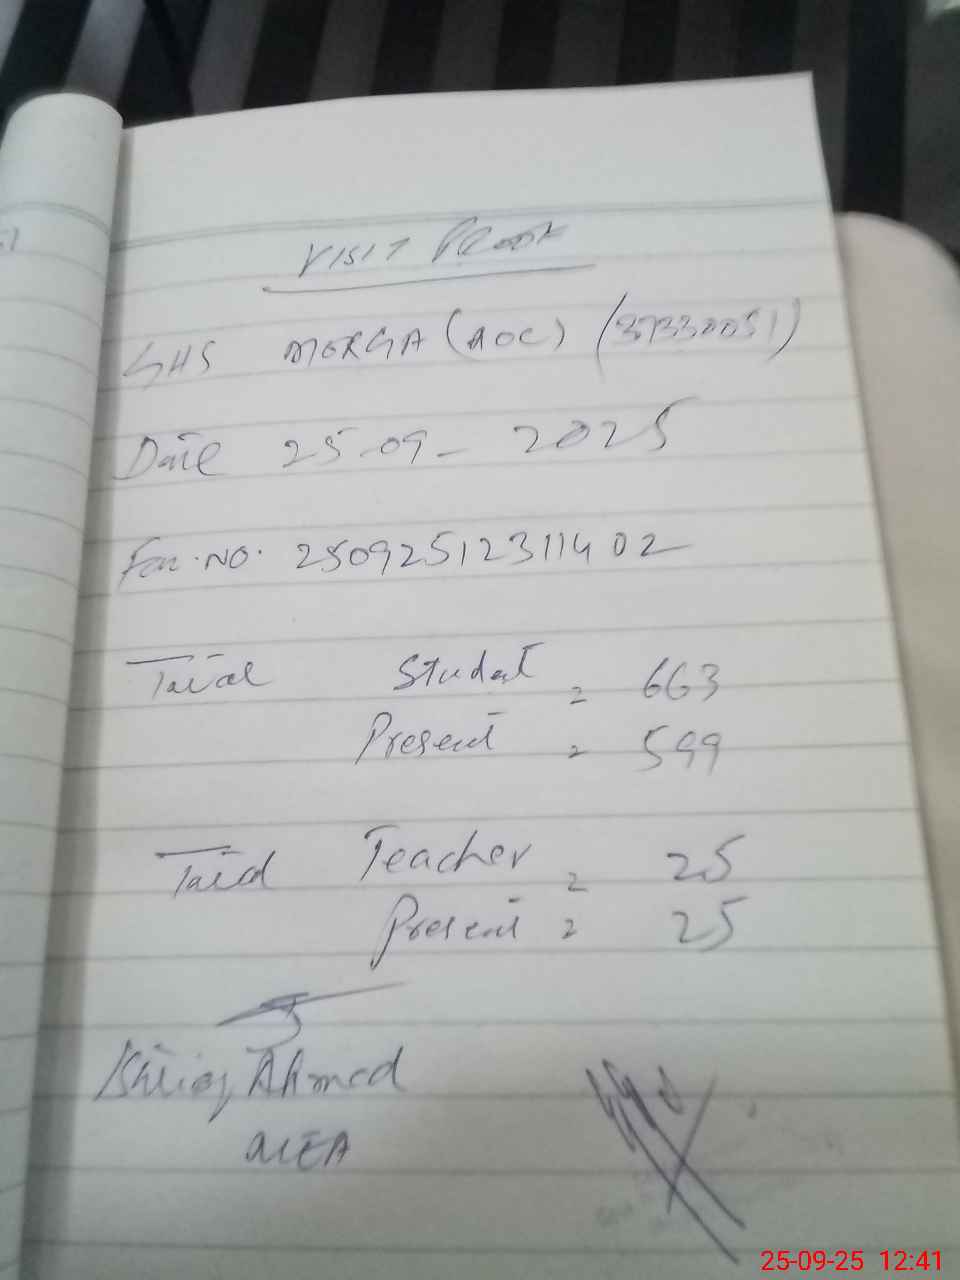 VISIT PROOF
GHS MORGA (AOC) (37330051)
Date 25-09-2025
For. No. 25092512311402
Total Student = 663
Present = 599
Total Teacher = 25
Present = 25
Ahmed
MEA
25-09-25 12:41